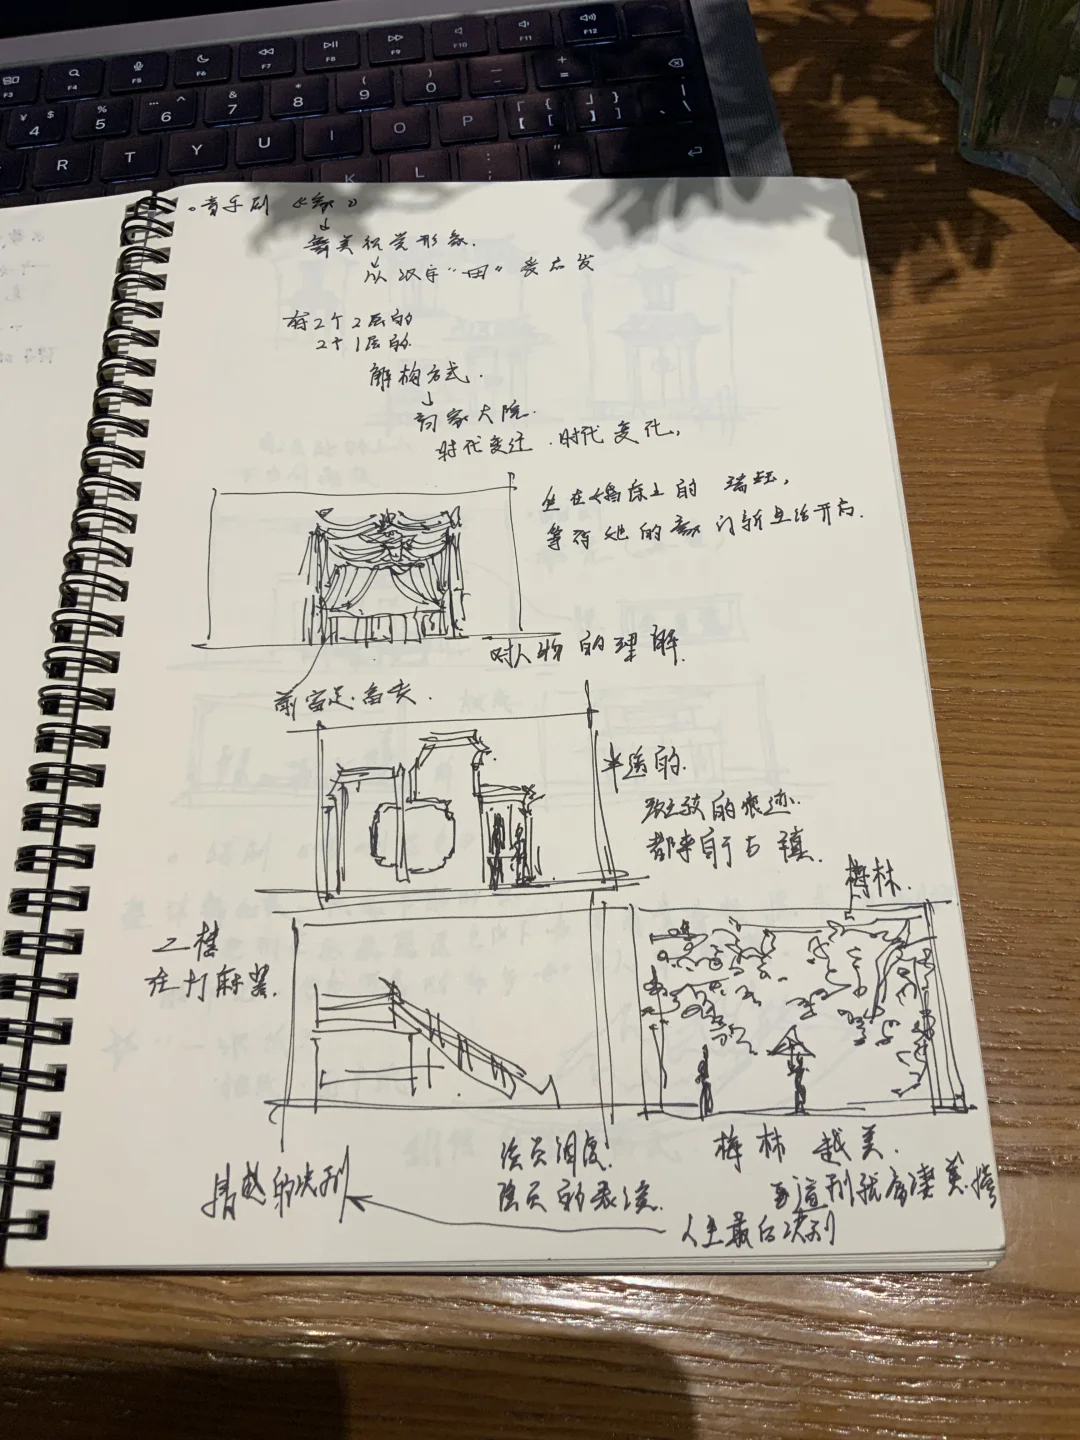 F3 F4 F5 F6 F7 F8 F9 F10 F11 F12
¥ $ 4 % 5 … ^ 6 & 7 * 8 ( 9 ) 0 — - + =
R T Y U I O P 「 { 【 [ 」 } 】 ] 、 \ |
K L : ; " '
。音乐剧《家》
↓
舞美视觉形象.
从汉字“田”出发
有2个2层的
2个1层的
解构方式.
↓
高家大院.
时代变迁.时代变化,
坐在婚床上的 瑞珏,
等待她的家门
对人物的理解.
半透的.
的痕迹.
都来自于古镇.
梅林.
二楼
在打麻将.
演员调度.
演员的表演.
梅林越美.
人生最后诀别
的诀别